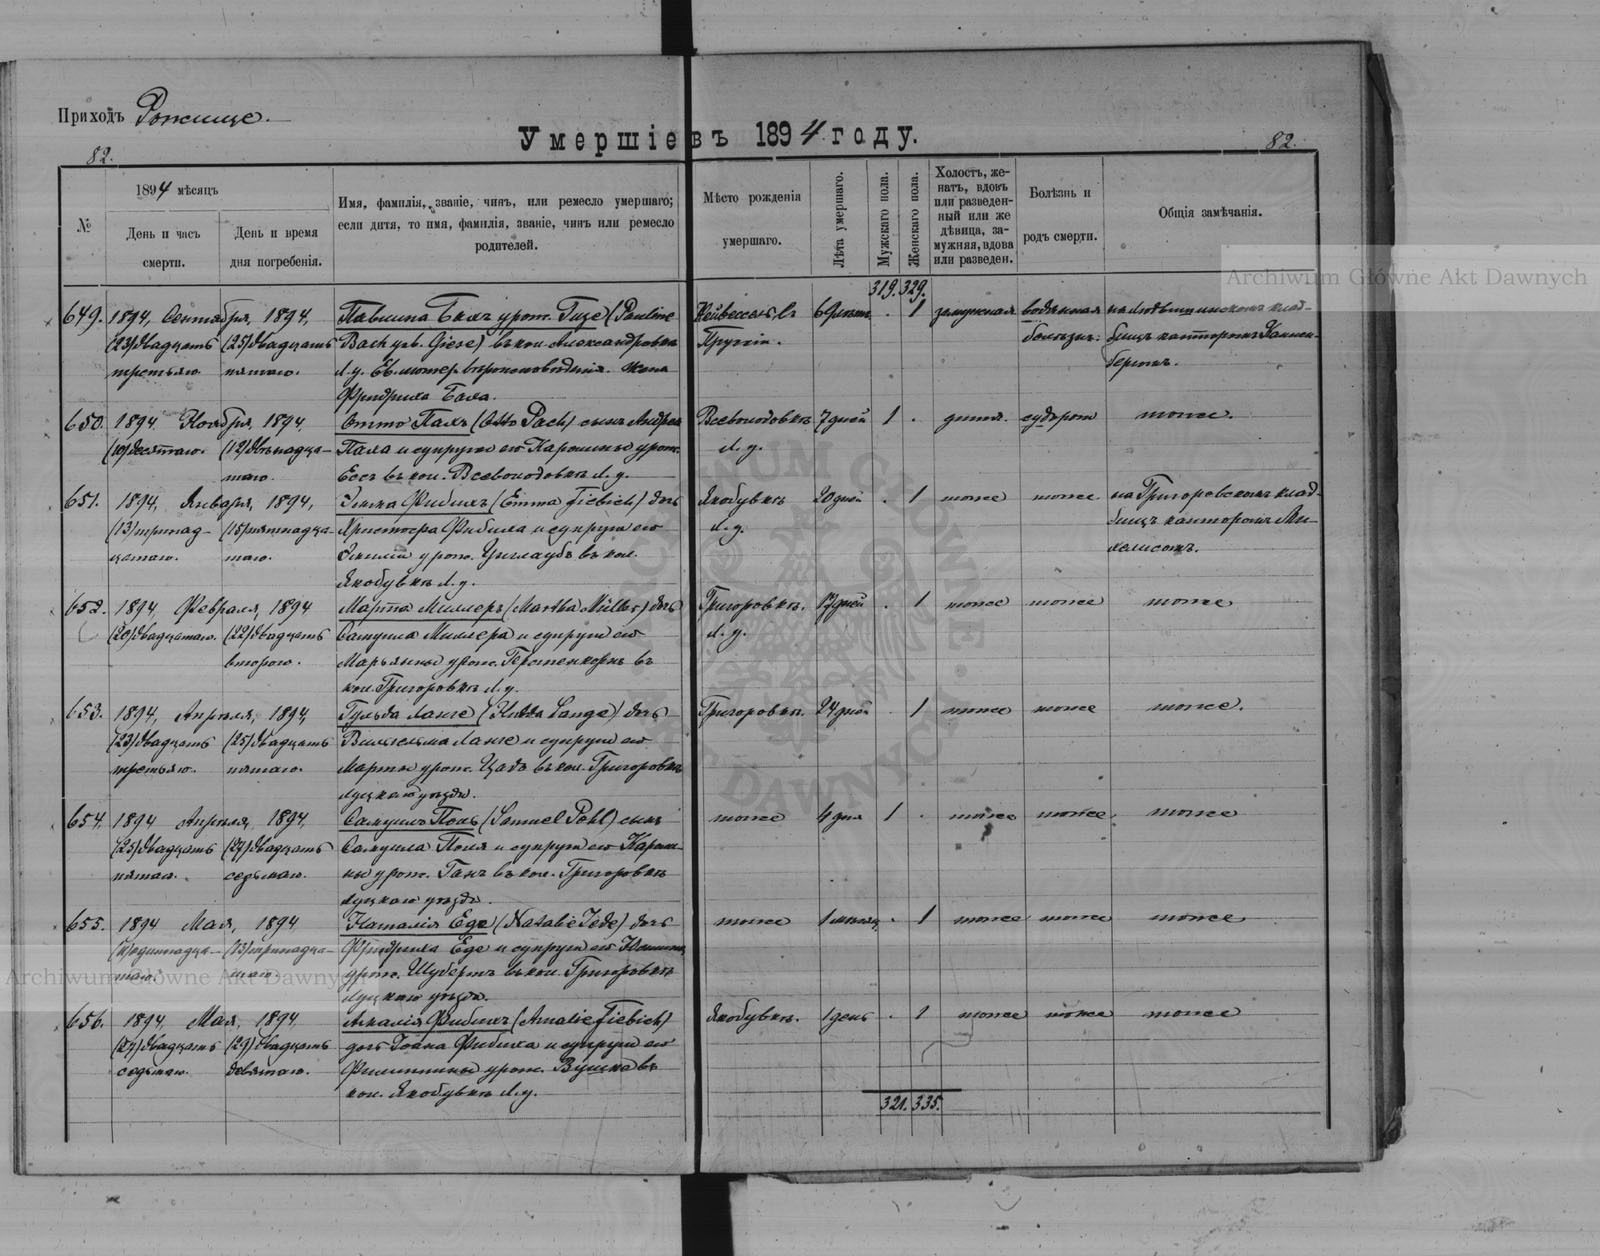 Приходъ Рожище.
Умершіе въ 1894 году.
82.
82.
№
1894 мѣсяцъ
День и часъ смерти.
День и время дня погребенія.
Имя, фамилія, званіе, чинъ, или ремесло умершаго;
если дитя, то имя, фамилія, званіе, чинъ или ремесло
родителей.
Мѣсто рожденія
умершаго.
Лѣта умершаго.
Мужскаго пола.
Женскаго пола.
Холостъ, же-
натъ, вдовъ
или разведен-
ный или же
дѣвица, за-
мужняя, вдова
или разведен.
Болѣзнь и
родъ смерти.
Общія замѣчанія.
319. 329.
Archiwum Główne Akt Dawnych
649. 1894, Сентября, 1894, Павлина Бахъ урож. Гизе (Pauline
(23) двадцать (25) двадцать Bach geb. Giese) въ кол. Александровкѣ Пруссіи.
третьяго. пятаго. Л. у. Ев. лютер. вѣроисповѣданія. Жена
Фридриха Баха.
замужняя водяная
болѣзнь.
1
650. 1894 Ноября, 1894, Отто Пахъ (Otto Pach) сынъ Андрея Всеволодовкѣ 7 дней 1 . дитя. судорог тоже.
(10) десятаго. (12) двѣнадца- Паха и супруги его Каролины урож. Л. у.
таго. въ кол. Всеволодовкѣ Л. у.
651. 1894, Января, 1894, Эмма Фибихъ (Emma Fiebich) дочь Якобувкѣ 20 дней . 1 тоже тоже на Григоровскомъ клад-
(13) тринад- (15) пятнадца- Христофа Фибиха и супруги его Л. у. бищѣ канторомъ Ми-
цатаго. таго. Эмиліи урож. въ кол. хелисомъ.
Якобувкѣ Л. у.
652. 1894 Февраля, 1894 Марта Миллеръ (Martha Müller) дочь Григоровкѣ. 17 дней . 1 тоже тоже тоже
(20) двадцатаго. (22) двадцать Самуила Миллера и супруги его Л. у.
второго. Марьянны урож. Герстенкорнъ въ
кол. Григоровкѣ Л. у.
653. 1894, Апрѣля, 1894, Гульда Ланге (Hulda Lange) дочь Григоровкѣ. 24 дней . 1 тоже тоже тоже.
(23) двадцать (25) двадцать Вильгельма Ланге и супруги его
третьяго. пятаго. Марты урож. въ кол. Григоровкѣ
луцкаго уѣзда.
654. 1894 Апрѣля, 1894, Самуилъ Поль (Samuel Pohl) сынъ тоже 4 дня 1 . тоже тоже тоже
(25) двадцать (27) двадцать Самуила Поля и супруги его Кароли-
пятаго. седьмаго. ны урож. Ганъ въ кол. Григоровкѣ
луцкаго уѣзда.
655. 1894 Мая, 1894 Наталія Еде (Natalie Jede) дочь тоже 1 мѣсяц. . 1 тоже тоже тоже
(11) одиннадца- (13) тринадца- Фридриха Еде и супруги его
таго. таго. урож. Шубертъ въ кол. Григоровкѣ
луцкаго уѣзда.
Archiwum Główne Akt Dawnych
656. 1894, Мая, 1894, Амалія Фибихъ (Amalie Fiebich) Якобувкѣ. 1 день . 1 тоже тоже тоже
(27) двадцать (29) двадцать дочь Іоана Фибиха и супруги его
седьмаго. девятаго. Филиппины урож. въ
кол. Якобувкѣ Л. у.
321. 335.